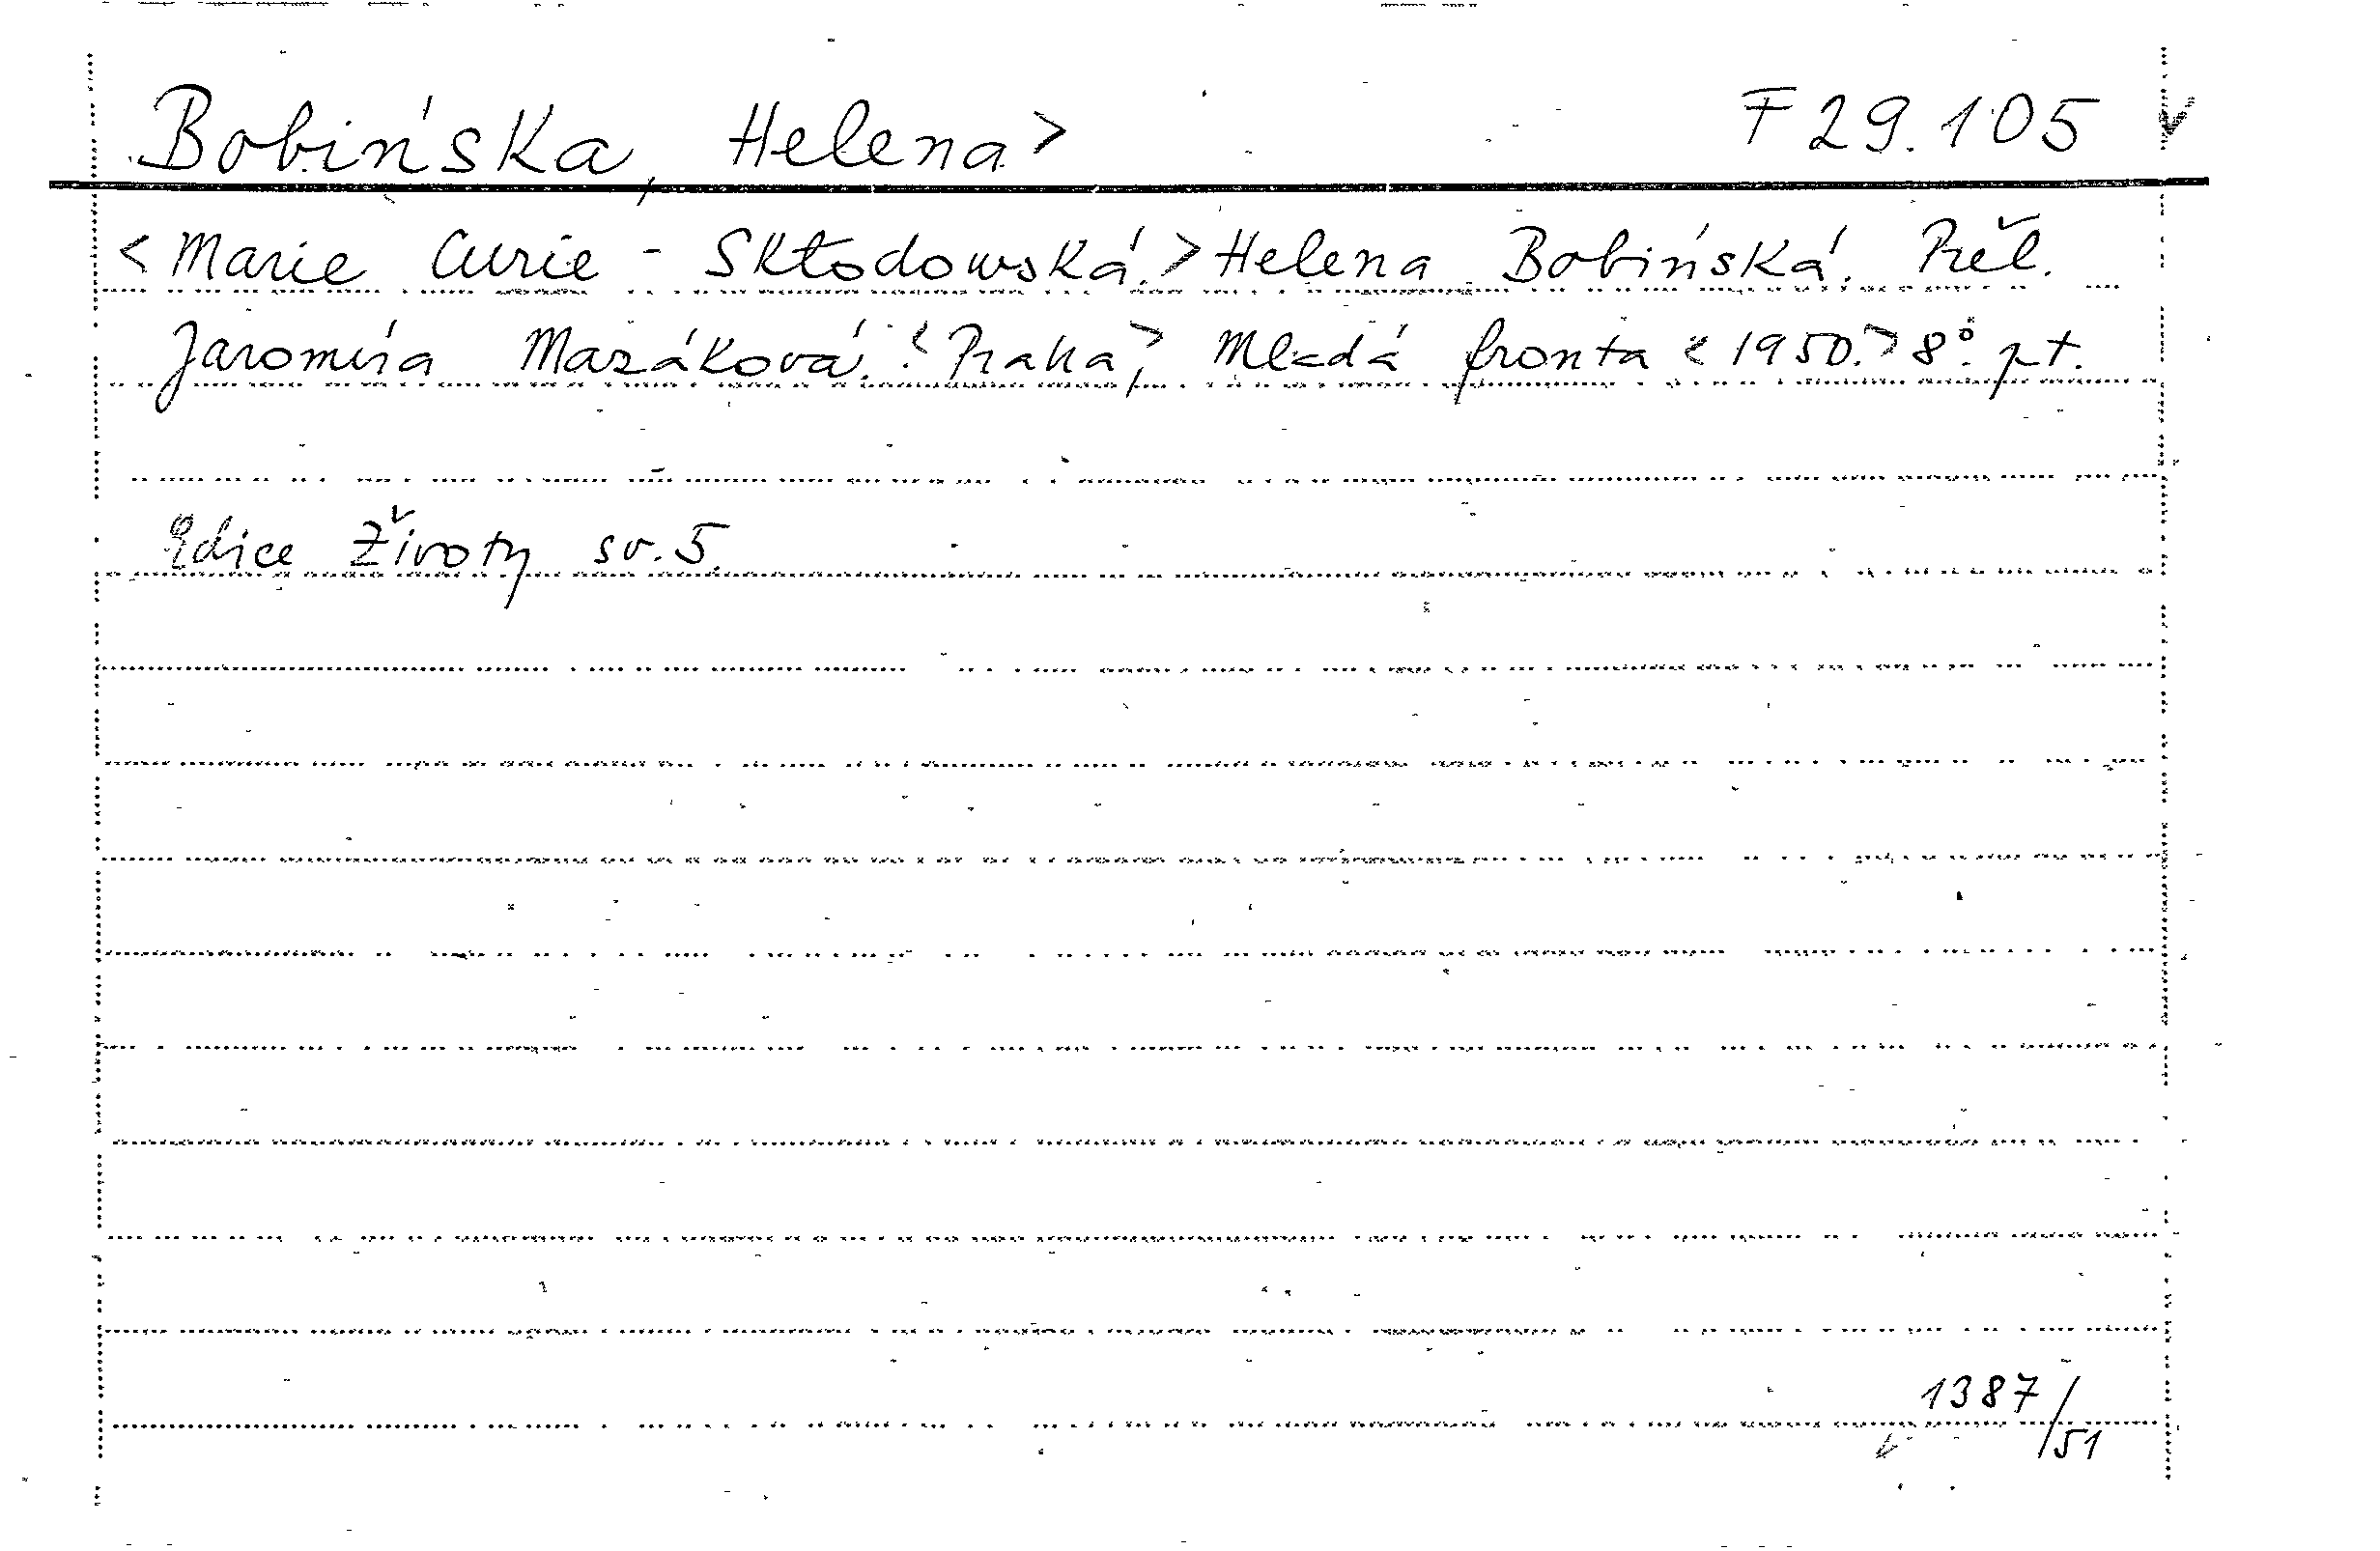 Bobińska, Helena> F 29.105
<Marie Curie - Skłodowská.> Helena Bobińská. Přel.
Jaromíra Mazáková. <Praha,> Mladá fronta <1950.> 8°. pt.
Edice Životy sv. 5.
1387/51